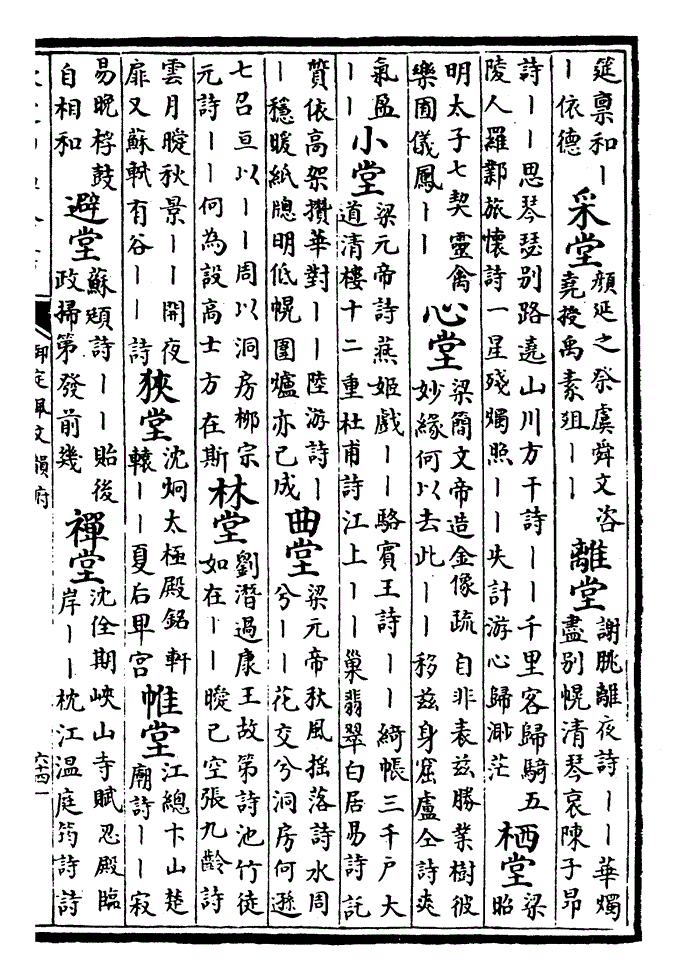 筵稟和丨
丨依德
采堂
顏延之祭虞舜文咨
堯授禹素俎丨丨
離堂
謝朓離夜詩丨丨華燭
盡別幌清琴哀陳子昂
詩丨丨思琴瑟別路遶山川方干詩丨丨千里客歸騎五
陵人羅鄴旅懷詩一星殘燭照丨丨失計游心歸渺茫
栖堂
梁
昭
明太子七契靈禽
樂囿儀鳳丨丨
心堂
梁簡文帝造金像疏自非表兹勝業樹彼
妙緣何以去此丨丨移兹身窟盧仝詩爽
氣盈
丨丨
小堂
梁元帝詩燕姬戲丨丨駱賓王詩丨丨綺帳三千戶大
道清樓十二重杜甫詩江上丨丨巢翡翠白居易詩託
質依高架攢華對丨丨陸游詩丨
丨穩暖紙牕明低幌圍爐亦已成
曲堂
梁元帝秋風摇落詩水周
兮丨丨花交兮洞房何遜
七召亘以丨丨周以洞房柳宗
元詩丨丨何為設高士方在斯
林堂
劉潛過康王故第詩池竹徒
如在丨丨曖已空張九齡詩
雲月曖秋景丨丨開夜
扉又蘇軾有谷丨丨詩
狹堂
沈炯太極殿銘軒
轅丨丨夏后卑宫
帷堂
江總卞山楚
廟詩丨丨寂
易晚桴鼓
自相和
避堂
蘇頲詩丨丨貽後
政掃第發前幾
禪堂
沈佺期峽山寺賦忍殿臨
岸丨丨枕江温庭筠詩詩
御定佩文韻府